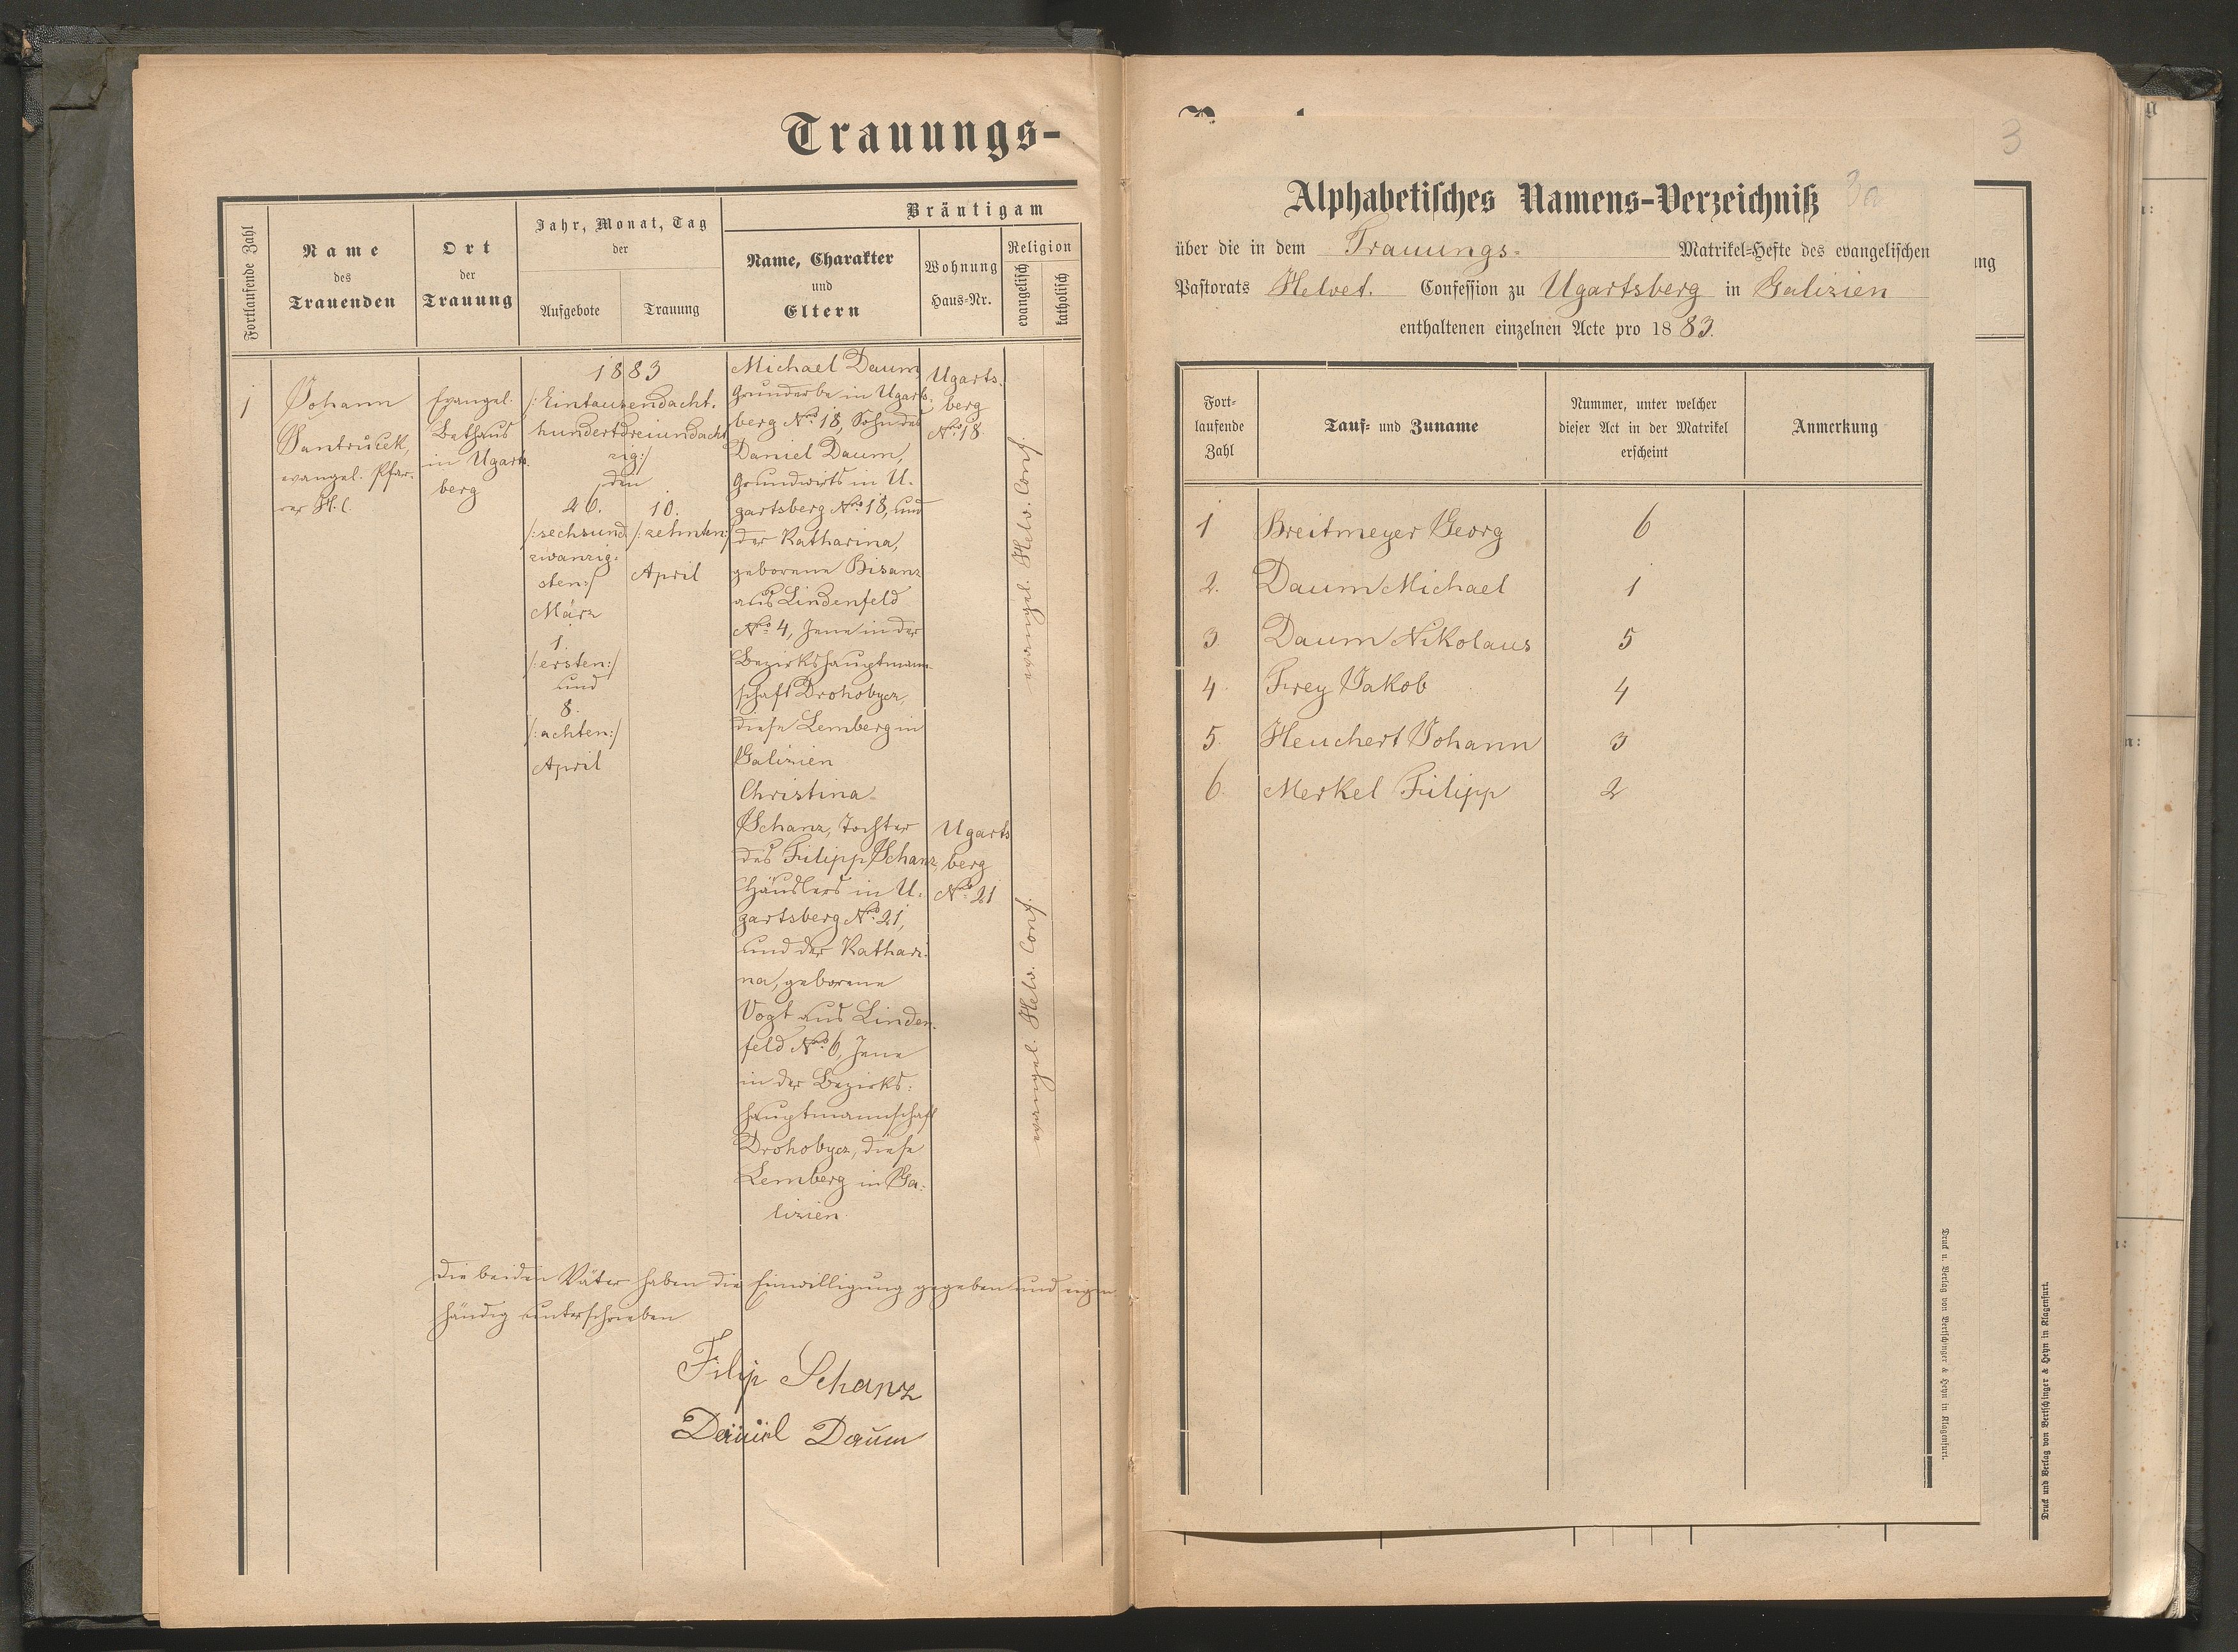 Trauungs-
Fortlaufende Zahl
Name
des
Trauenden
Ort
der
Trauung
Jahr, Monat, Tag
der
Aufgebote
Trauung
Bräutigam
Name, Charakter
und
Eltern
Wohnung
Haus-Nr.
Religion
evangelisch
katholisch
1
Johann
Santrůček,
evangel. Pfar-
rer H. C.
Evangel.
Bethaus
in Ugarts-
berg
1883
/:Eintausendacht-
hundertdreiundacht
zig:/
den
26.
/:sechsund
zwanzig-
sten:/
März
1.
/:ersten:/
und
8.
/:achten:/
April
10.
/:zehnten:/
April
Michael Daum
Grunderbe in Ugarts-
berg Nro 18, Sohn des
Daniel Daum,
Grundwirts in U-
gartsberg Nro 18, und
der Katharina,
geborene Bisanz
aus Lindenfeld
Nro 4, Jene in der
Bezirkshauptmann-
schaft Drohobycz,
diese Lemberg in
Galizien
Ugarts-
berg
Nro 18
evangel. Helv. Conf.
Christina
Schanz, Tochter
des Filipp Schanz,
Häuslers in U-
gartsberg Nro 21,
und der Kathari-
na, geborene
Vogt aus Linden-
feld Nro 6, Jene
in der Bezirks-
hauptmannschaft
Drohobycz, diese
Lemberg in Ga-
lizien
Ugarts
berg
Nro 21
evangel. Helv. Conf.
Die beiden Väter haben die Einwilligung gegeben und eigen
händig unterschrieben
Filip Schanz
Daniel Daum
3
Alphabetisches Namens-Verzeichniß 3a
über die in dem Trauungs- Matrikel-Hefte des evangelischen
Pastorats Helvet. Confession zu Ugartsberg in Galizien
enthaltenen einzelnen Acte pro 1883.
ung
Fort-
laufende
Zahl
Tauf- und Zuname
Nummer, unter welcher
dieser Act in der Matrikel
erscheint
Anmerkung
1 Breitmeyer Georg 6
2. Daum Michael 1
3 Daum Nikolaus 5
4. Frey Jakob 4
5. Heuchert Johann 3
6. Merkel Filipp 2
Druck u. Verlag von Bertschinger & Heyn in Klagenfurt.
Druck und Verlag von Bertschinger & Heyn in Klagenfurt.